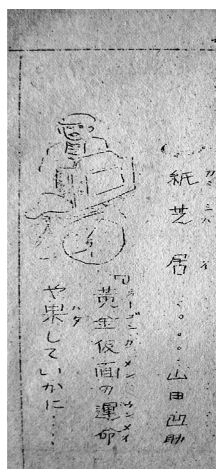 紙芝居。。。。山田凹助
『黄金仮面の運命
ハタ
や果していかに・・・・